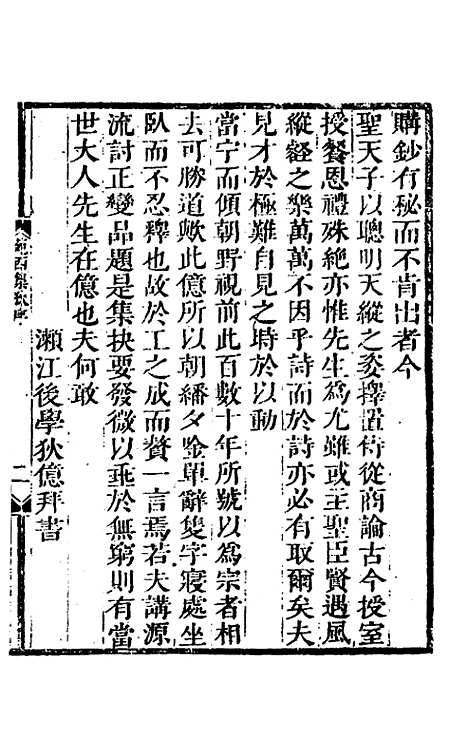 購鈔有秘而不肯出者今
聖天子以聰明天縱之姿擇置侍從商論古今授室
授餐恩禮殊絶亦惟先生爲尤雖或主聖臣賢遇風
縱壑之樂萬萬不因乎詩而於詩亦必有取爾矣夫
見才於極難自見之時於以動
當宁而傾朝野視前此百數十年所號以爲宗者相
去可勝道歟此億所以朝繙夕唫單辭隻字寢處坐
臥而不忍釋也故於工之成而贅一言焉若夫講源
流討正變品題是集抉要發微以垂於無窮則有當
世大人先生在億也夫何敢
瀨江後學狄億拜書
集序
二